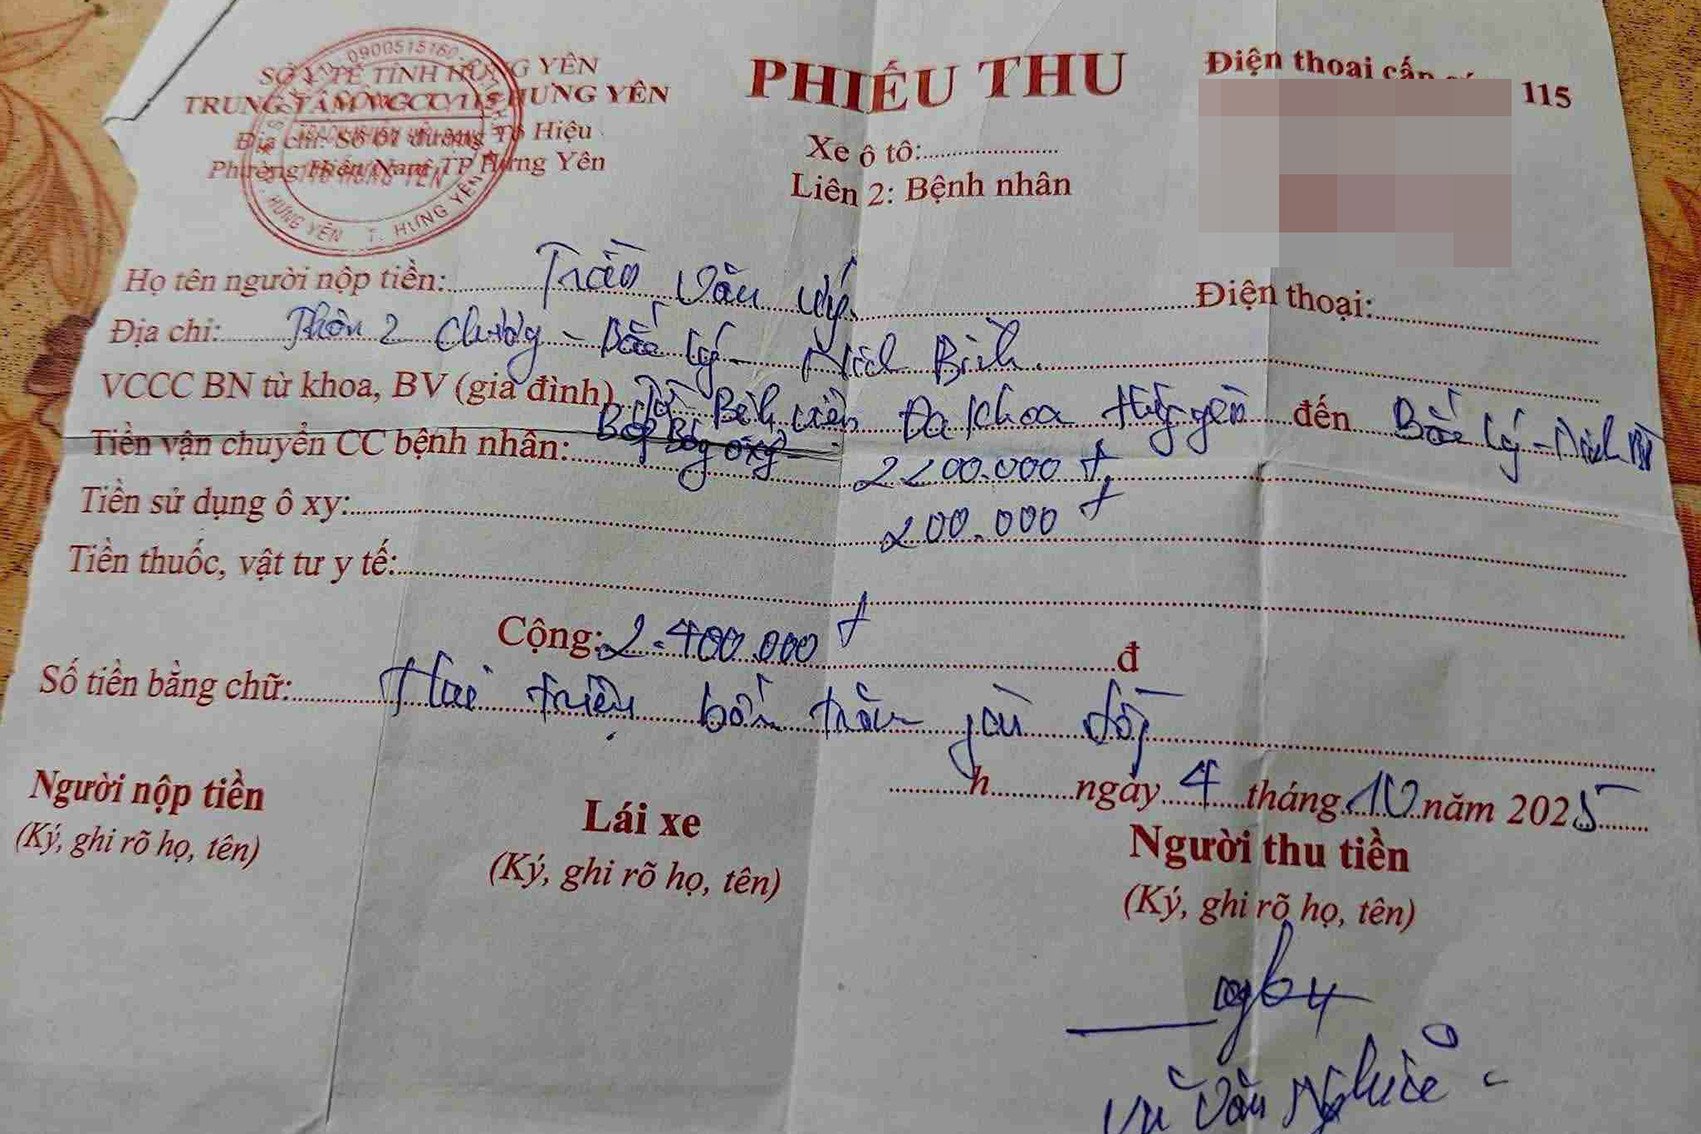 SỞ Y TẾ TỈNH HƯNG YÊN
TRUNG TÂM VCCC 115 HƯNG YÊN
Địa chỉ: Số 01 đường Tô Hiệu
Phường Hiến Nam TP Hưng Yên
0900515160
HƯNG YÊN T. HƯNG YÊN
PHIẾU THU
Xe ô tô:
Liên 2: Bệnh nhân
Điện thoại cấp 115
Họ tên người nộp tiền: Trần Văn Uý Điện thoại:
Địa chỉ: Thôn 2 Chương - Bắc Lý - Ninh Bình.
VCCC BN từ khoa, BV (gia đình) Từ Bệnh viện Đa khoa Hưng Yên đến Bắc Lý - Ninh B
Tiền vận chuyển CC bệnh nhân: Bóp Bóng oxy 2200.000 đ
Tiền sử dụng ô xy: 200.000 đ
Tiền thuốc, vật tư y tế:
Cộng: 2.400.000 đ đ
Số tiền bằng chữ: Hai triệu bốn trăm ngàn đồng
h ngày 4 tháng 10 năm 2025
Người nộp tiền
(Ký, ghi rõ họ, tên)
Lái xe
(Ký, ghi rõ họ, tên)
Người thu tiền
(Ký, ghi rõ họ, tên)
Vũ Văn